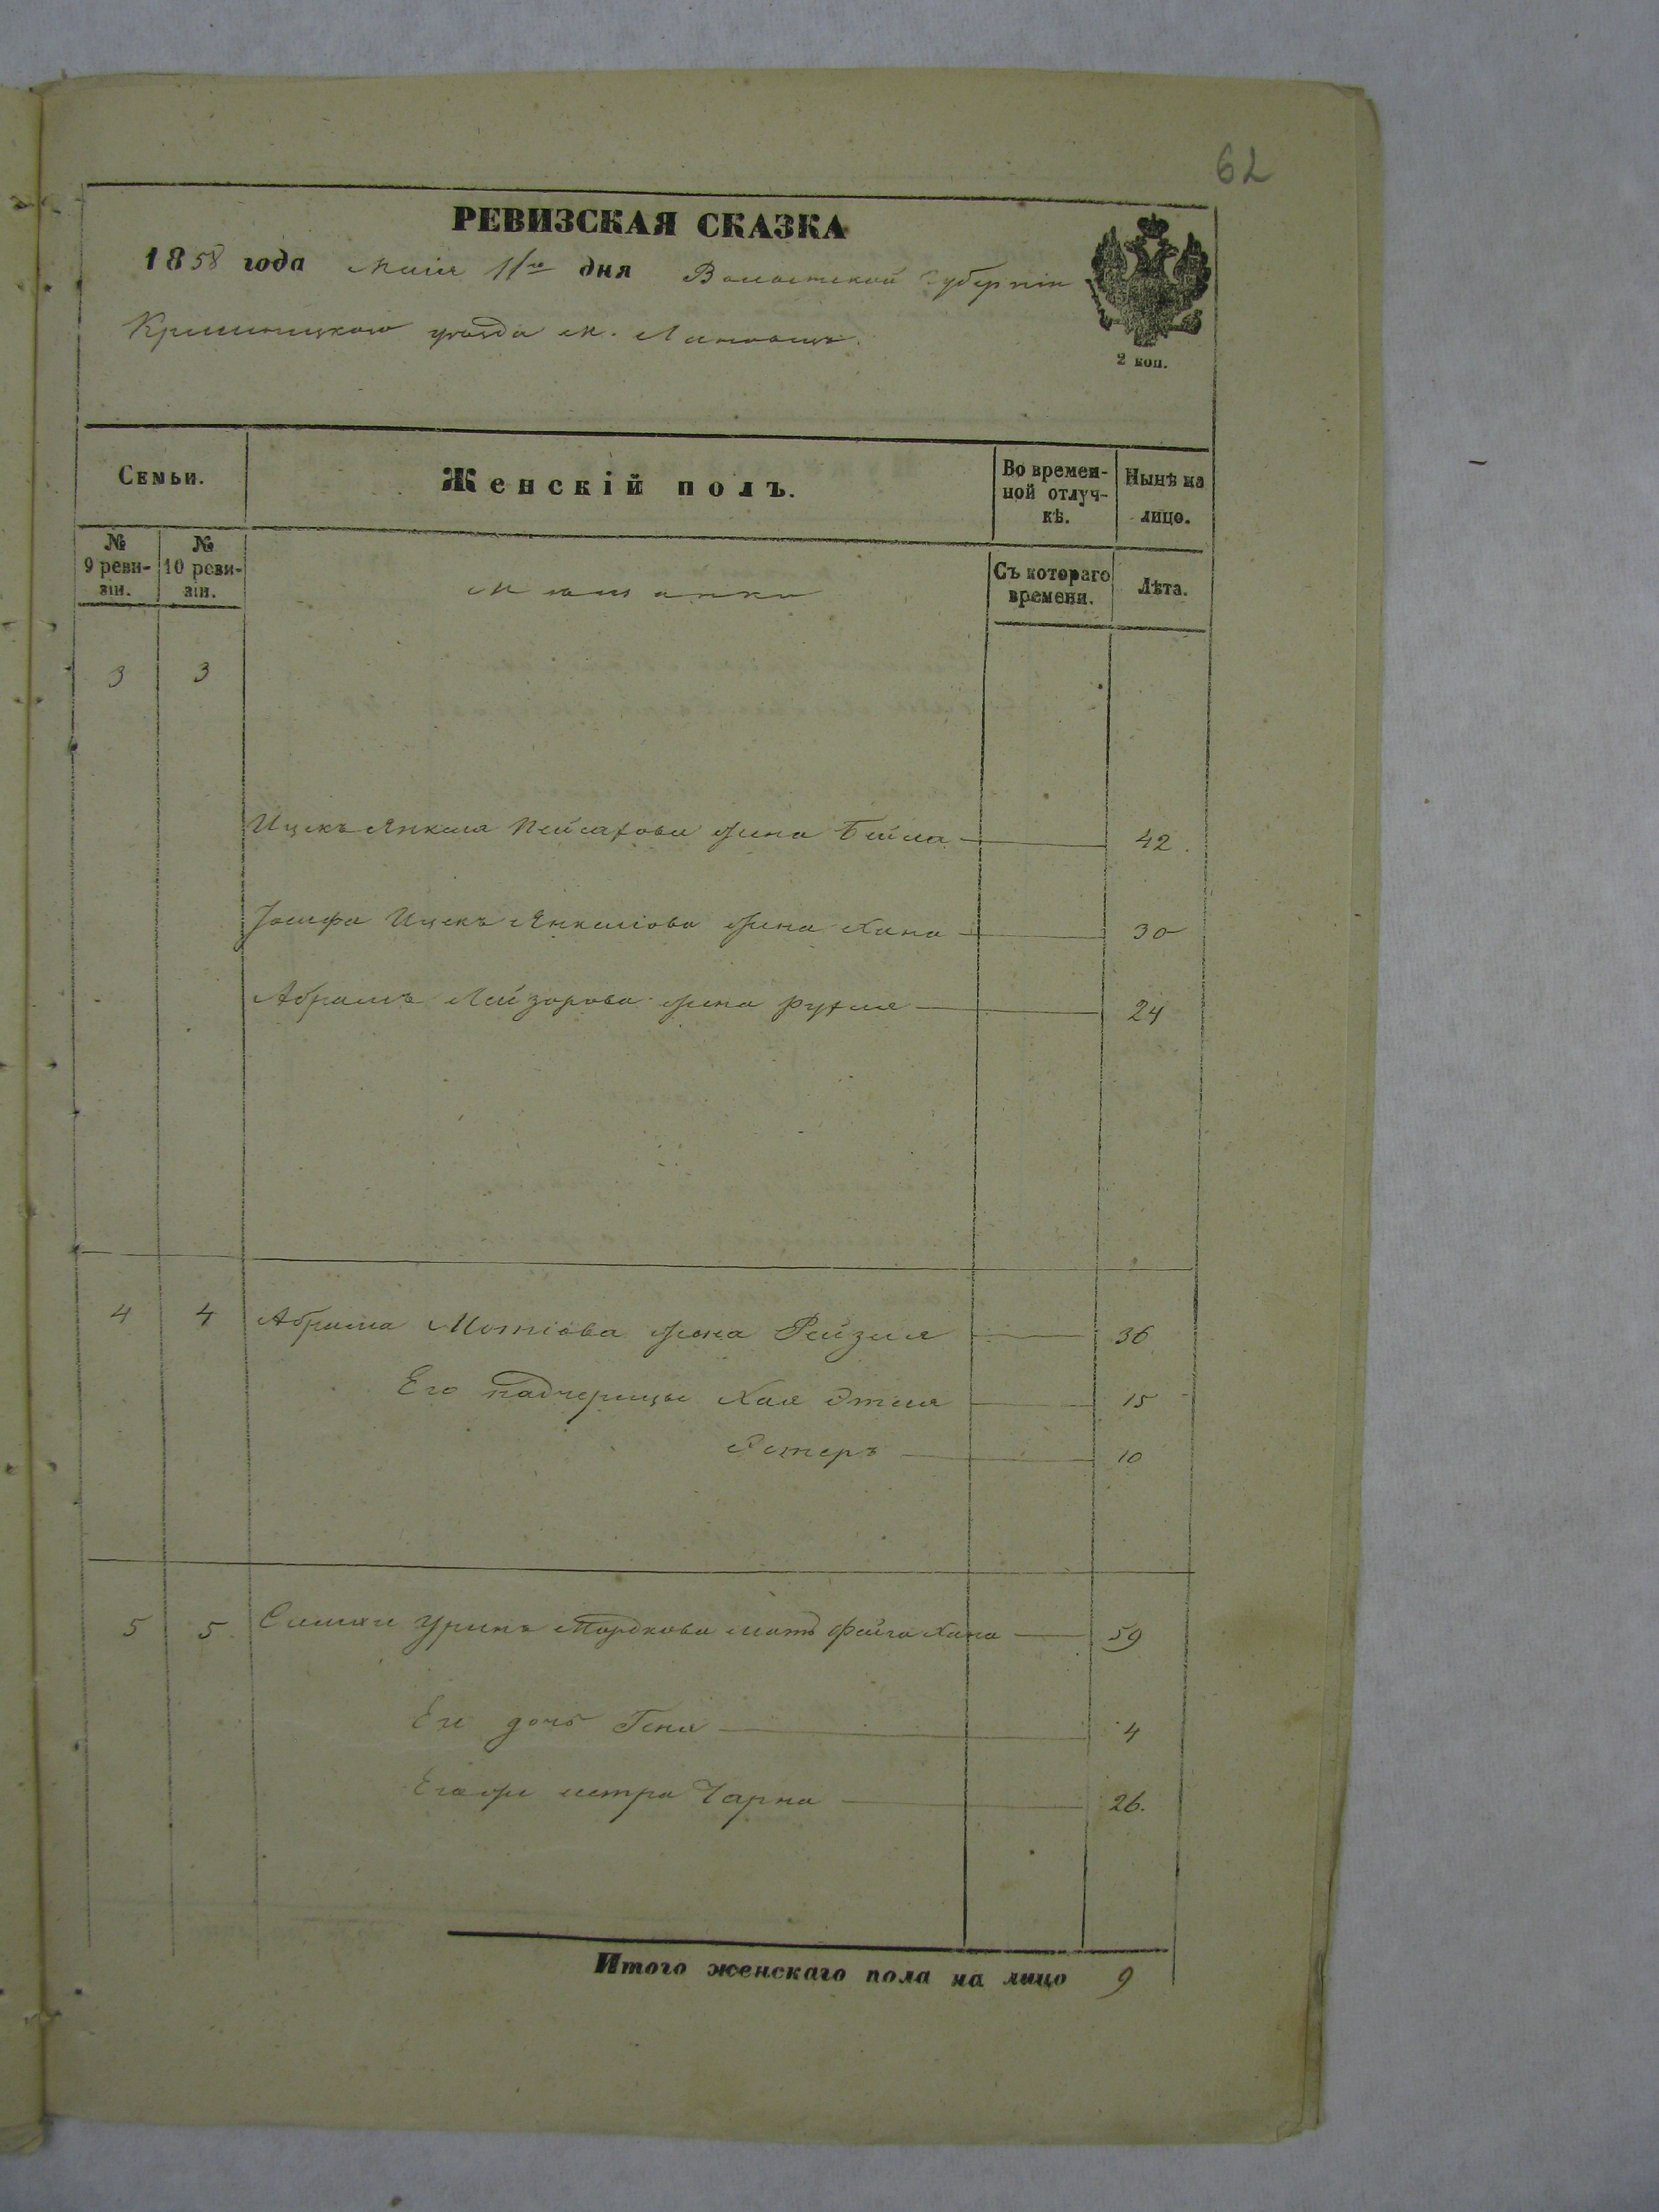 62
РЕВИЗСКАЯ СКАЗКА
1858 года Маія 11го дня Волынской Губерніи
Кременецкаго уѣзда м. Лановцы.
2 коп.
Семьи.
Женскій полъ.
Во времен-
ной отлуч-
кѣ.
Нынѣ на
лицо.
№
9 реви-
зіи.
№
10 реви-
зіи.
Мѣщанки
Съ котораго
времени.
Лѣта.
3 3
Ицекъ Янкеля Пейсахова жена Бейла 42.
Іосифа Ицекъ Янкеліова жена Хана 30
Абрамъ Лейзорова жена Рухля 24
4 4 Абрама Мотіова жена Рейзля 36
Его падчерицы Хая Этля 15
Эстеръ 10
5 5. Симхи Уринъ Мордкова мать Файга Хана 59
Его дочь Геня 4
Егоже сестра Чарна 26.
Итого женскаго пола на лицо 9